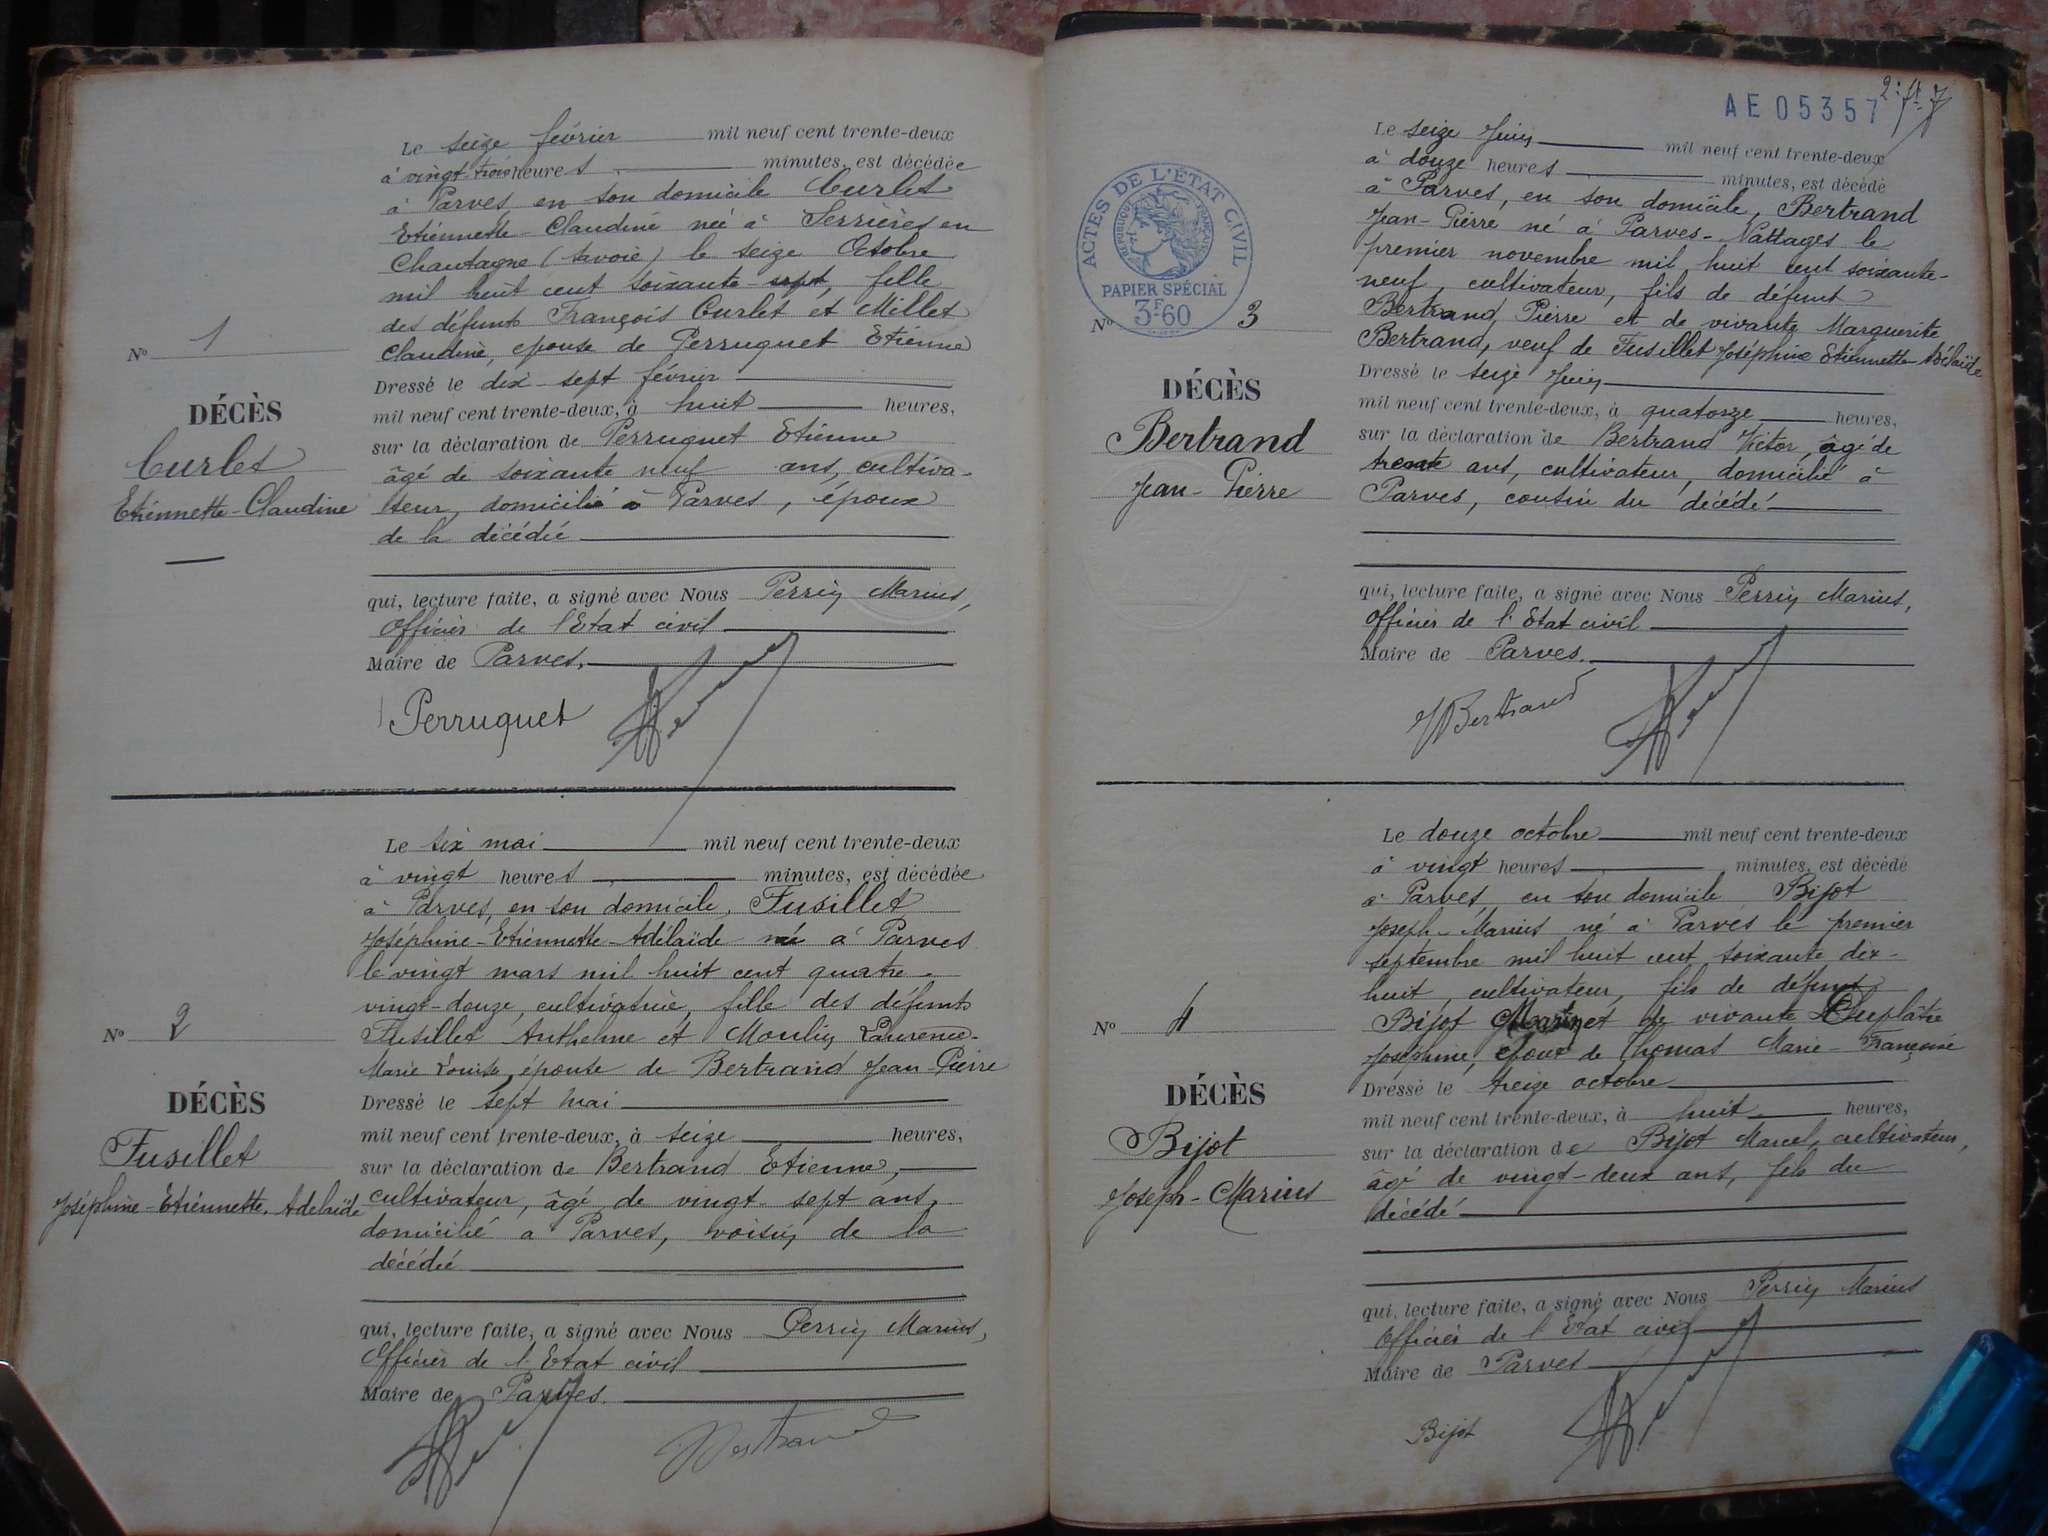 Le seize février mil neuf cent trente-deux
à vingt-trois heures minutes, est décédée
à Parves, en son domicile Curlet
Etiennette-Claudine née à Serrières en
Chautagne (Savoie) le seize Octobre
mil huit cent soixante-sept, fille
des défunts François Curlet et Millet
Claudine, épouse de Perruquet Etienne
Dressé le dix-sept février
mil neuf cent trente-deux, à huit heures,
sur la déclaration de Perruquet Etienne
âgé de soixante neuf ans, cultiva-
teur, domicilié à Parves, époux
de la décédée
qui, lecture faite, a signé avec Nous Perrin Marius,
Officier de l'Etat civil
Maire de Parves.
Perruquet
N° 1
DÉCÈS
Curlet
Etiennette-Claudine
Le six mai mil neuf cent trente-deux
à vingt heures minutes, est décédée
à Parves, en son domicile, Fusillet
Joséphine-Etiennette-Adélaïde née à Parves
le vingt mars mil huit cent quatre-
vingt-douze, cultivatrice, fille des défunts
Fusillet Anthelme et Moulin Laurence-
Marie Louise, épouse de Bertrand Jean-Pierre
Dressé le sept mai
mil neuf cent trente-deux, à seize heures,
sur la déclaration de Bertrand Etienne,
cultivateur, âgé de vingt-sept ans,
domicilié a Parves, voisin de la
décédée
qui, lecture faite, a signé avec Nous Perrin Marius,
Officier de l'Etat civil
Maire de Parves.
Bertrand
N° 2
DÉCÈS
Fusillet
Joséphine-Etiennette-Adelaïde
AE05357
ACTES DE L'ÉTAT CIVIL
RÉPUBLIQUE FRANÇAISE
PAPIER SPÉCIAL
3F60
Le seize Juin mil neuf cent trente-deux
à douze heures minutes, est décédé
à Parves, en son domicile, Bertrand
Jean-Pierre né à Parves-Nattages le
premier novembre mil huit cent soixante-
neuf, cultivateur, fils de défunt
Bertrand Pierre et de vivante Marguerite
Bertrand, veuf de Fusillet Joséphine Etiennette Adélaïde
Dressé le seize Juin
mil neuf cent trente-deux, à quatorze heures,
sur la déclaration de Bertrand Victor, âgé de
trente ans, cultivateur, domicilié à
Parves, cousin du décédé
qui, lecture faite, a signé avec Nous Perrin Marius,
Officier de l'Etat civil
Maire de Parves.
VBertrand
N° 3
DÉCÈS
Bertrand
Jean-Pierre
Le douze octobre mil neuf cent trente-deux
à vingt heures minutes, est décédé
à Parves, en son domicile Bijot
Joseph-Marius né à Parves le premier
septembre mil huit cent soixante dix-
huit, cultivateur, fils de défunt
Bijot et de vivante Duplâtre
Joséphine, époux de Thomas Marie-Françoise
Dressé le treize octobre
mil neuf cent trente-deux, à huit heures,
sur la déclaration de Bijot Marcel, cultivateur,
âgé de vingt-deux ans, fils du
décédé
qui, lecture faite, a signé avec Nous Perrin Marius
Officier de l'Etat civil
Maire de Parves
Bijot
N° 4
DÉCÈS
Bijot
Joseph-Marius